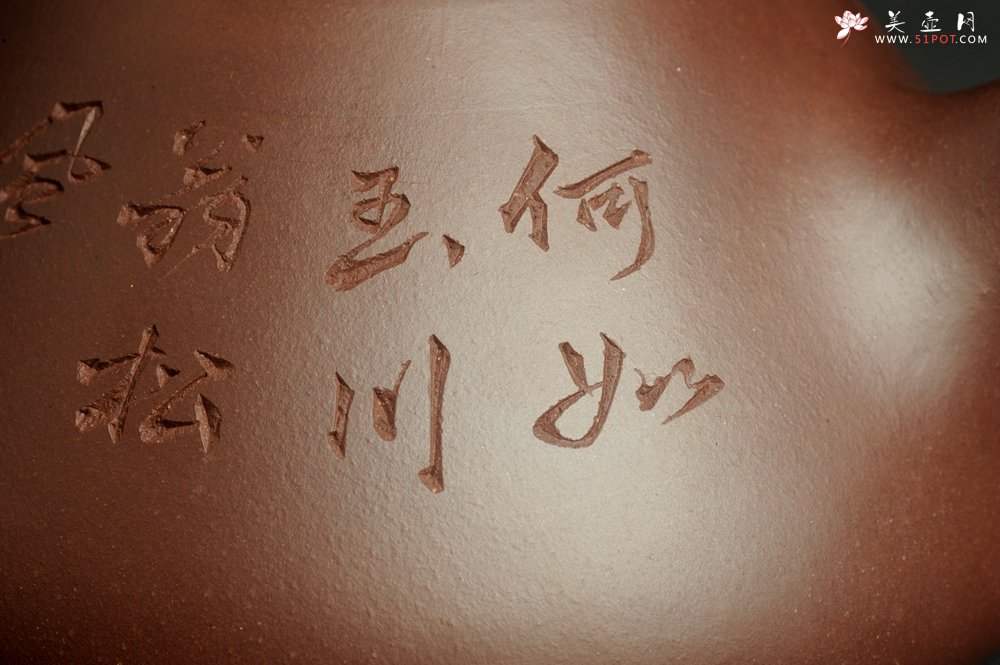 何如
玉川
翁松
風
美壶网
WWW.51POT.COM